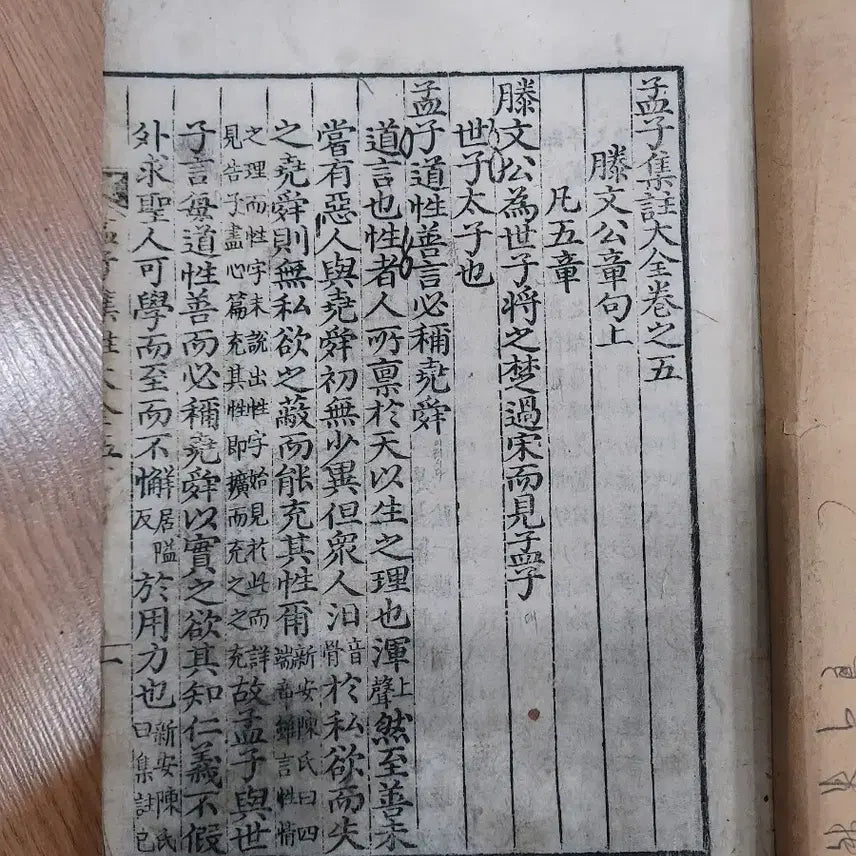 孟子集註大全卷之五
滕文公章句上
凡五章
滕文公為世子將之楚過宋而見孟子
世子太子也
孟子道性善言必稱堯舜
道言也性者人所禀於天以生之理也渾上聲然至善未
嘗有惡人與堯舜初無少異但衆人汩音骨於私欲而失
之堯舜則無私欲之蔽而能充其性爾新安陳氏曰四端章雖言性情
之理而性字未說出性字始見於此而詳見告子盡心篇充其性即擴而充之之充故孟子與世
子言每道性善而必稱堯舜以實之欲其知仁義不假
外求聖人可學而至而不懈居隘反於用力也新安陳氏曰集註已